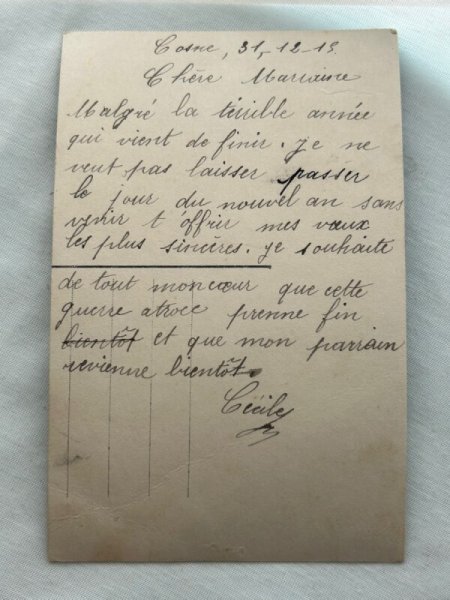 Cosne, 31-12-15
Chère Marraine
Malgré la térrible année
qui vient de finir. je ne
veut pas laisser passer
le jour du nouvel an sans
venir t'offrir mes vœux
les plus sincères. je souhaite
de tout mon cœur que cette
guerre atroce prenne fin
bientôt et que mon parrain
revienne bientôt.
Cécile